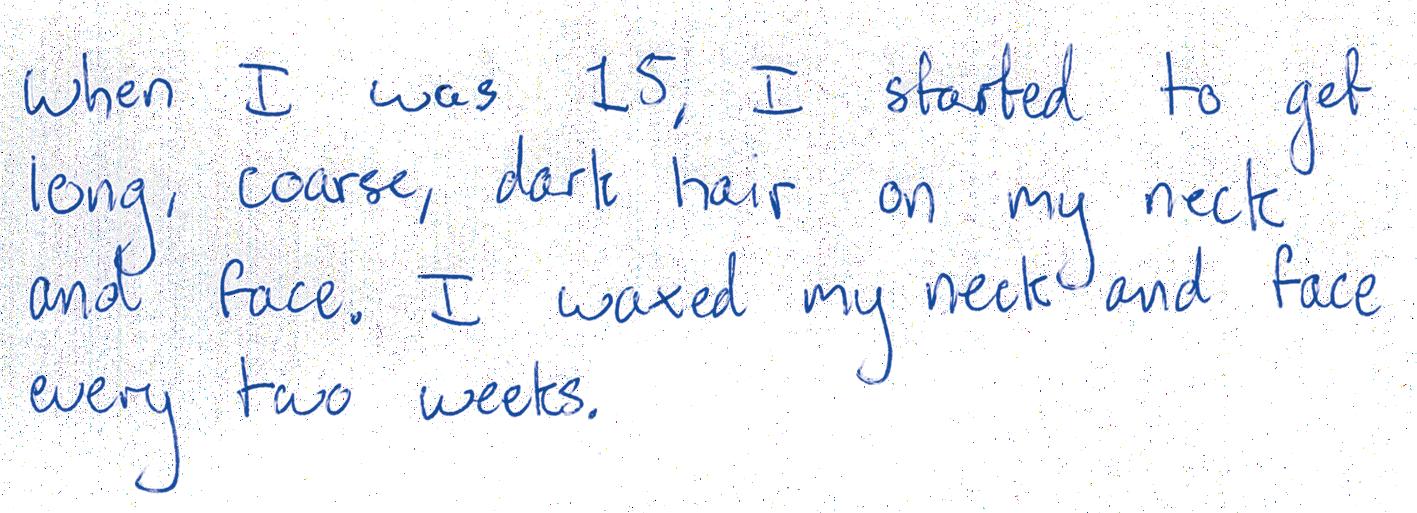 When I was 15, I started to get
long, coarse, dark hair on my neck
and face. I waxed my neck and face
every two weeks.